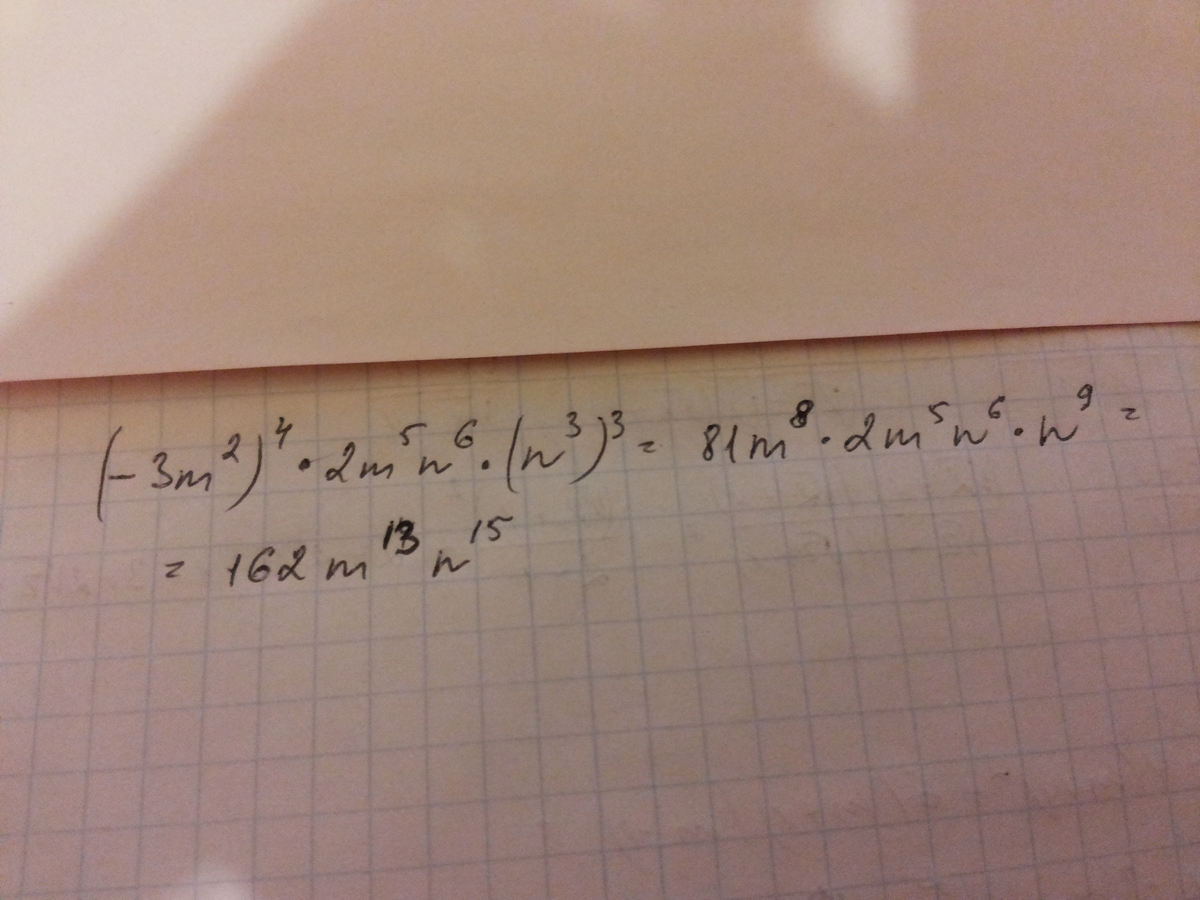 (-3m²)⁴ · 2m⁵n⁶ · (n³)³ = 81m⁸ · 2m⁵n⁶ · n⁹ =
= 162m¹³n¹⁵